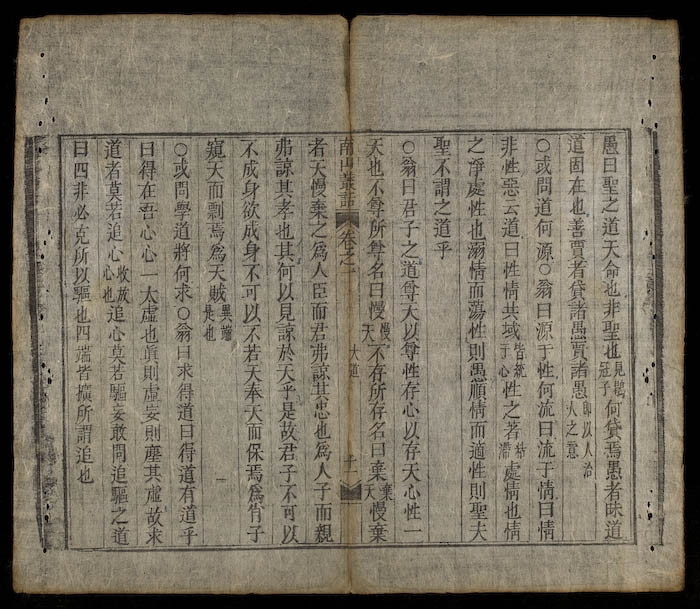 愚曰聖之道天命也非聖也見鶡冠子何貸焉愚者昧道
道固在也善賈者貸諸愚賈諸愚即以人治人之意
○或問道何源○翁曰源于性何流曰流于情曰情
非性惡云道曰性情共域皆統于心性之著粘滯處情也情
之淨處性也溺情而蕩性則愚順情而適性則聖夫
聖不謂之道乎
○翁曰君子之道尊天以尊性存心以存天心性一
天也不尊所尊名曰慢慢天不存所存名曰棄棄天慢棄
南山叢語 卷之一 大道 十一
者天慢棄之為人臣而君弗諒其忠也為人子而親
弗諒其孝也其何以見諒於天乎是故君子不可以
不成身欲成身不可以不若天奉天而保焉為肖子
窺天而剽焉為天賊異端是也
○或問學道將何求○翁曰求得道曰得道有道乎
曰得在吾心心一太虛也眞則虛妄則塵其虛故求
道者莫若追心收放心也追心莫若驅妄敢問追驅之道
曰四非必克所以驅也四端皆擴所謂追也